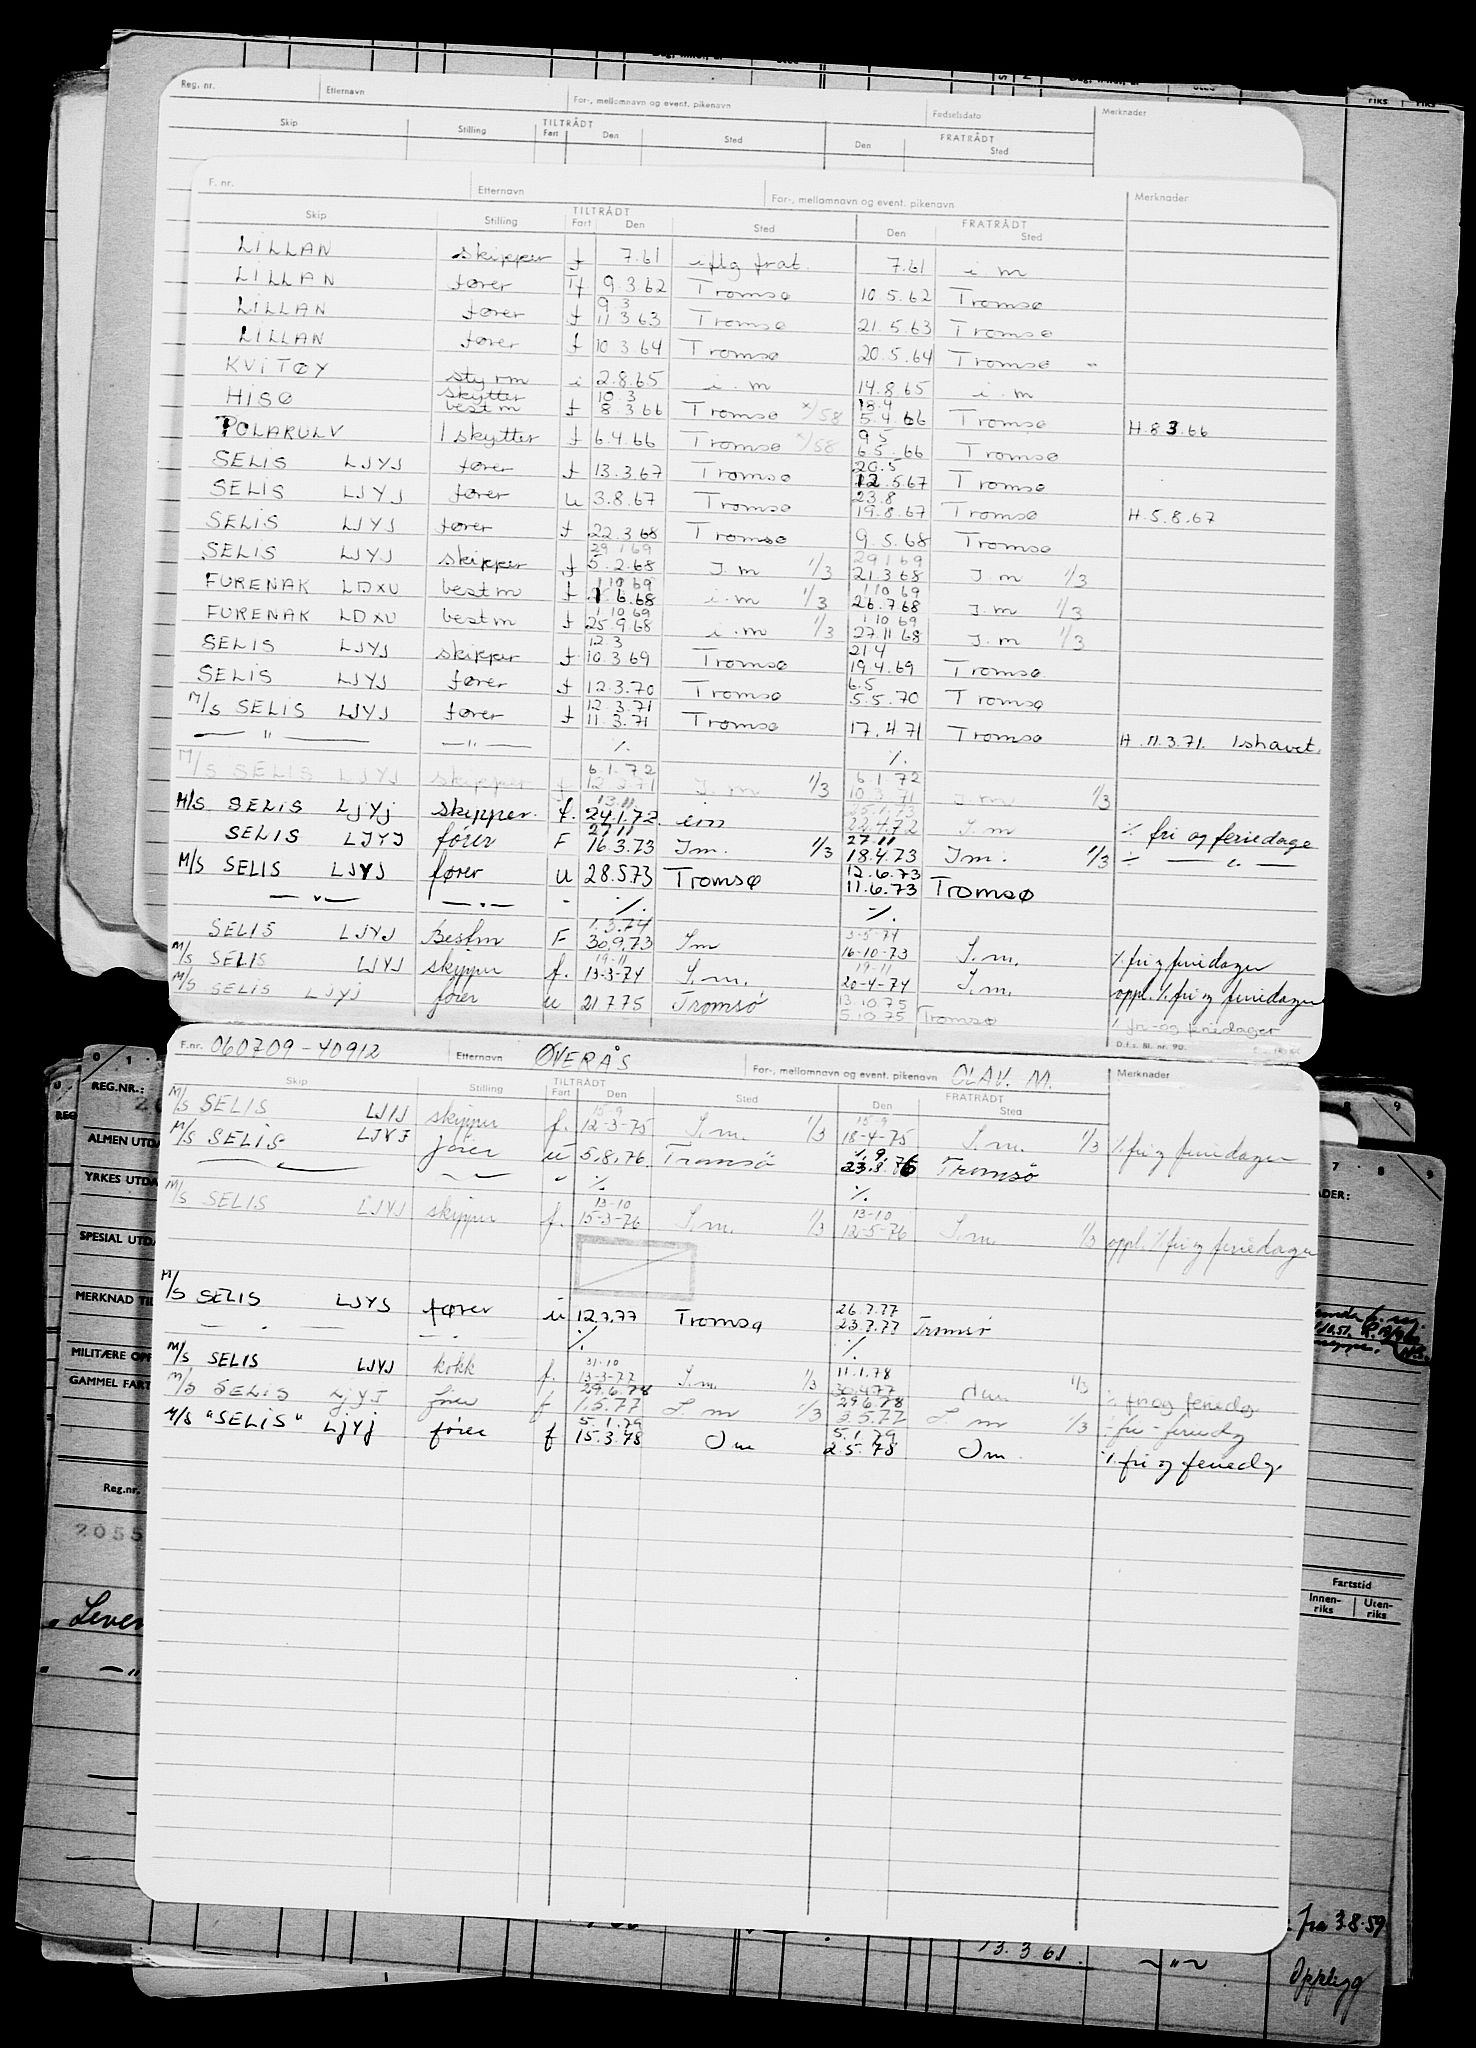 Reg. nr. Etternavn For-, mellomnavn og event. pikenavn Fødselsdato Merknader
Skip Stilling TILTRÅDT Fart Den Sted FRATRÅDT Den Sted
F. nr. Etternavn For-, mellomnavn og event. pikenavn Merknader
Skip Stilling TILTRÅDT Fart Den Sted FRATRÅDT Den Sted
LILLAN skipper f 7.61 iflg frat. 7.61 i.m
LILLAN fører f 9.3.62 Tromsø 10.5.62 Tromsø
LILLAN fører f 9 3 11.3.63 Tromsø 21.5.63 Tromsø
LILLAN fører f 10 3.64 Tromsø 20.5.64 Tromsø
KVITØY styrm i 2.8.65 i.m 14.8.65 i.m
HISØ skytter bestm f 10.3 8.3.66 Tromsø x/58 18.4 5.4.66 Tromsø H.8.3.66
POLARULV 1 skytter f 6.4.66 Tromsø x/58 9 5 6.5.66 Tromsø
SELIS LJYJ fører f 13.3.67 Tromsø 20.5 12.5.67 Tromsø
SELIS LJYJ fører u 3.8.67 Tromsø 23.8 19.8.67 Tromsø H.5.8.67
SELIS LJYJ fører f 22.3.68 Tromsø 9.5.68 Tromsø
SELIS LJYJ skipper f 29 1 69 5.2.68 J.m 1/3 29 1 69 21.3 68 J.m 1/3
FURENAK LDXU bestm f 1 10 69 6.68 i.m 1/3 1 10 69 26.7 68 J.m 1/3
FURENAK LDXU bestm f 1 10 69 25.9.68 i.m 1/3 1 10 69 27.11 68 J.m 1/3
SELIS LJYJ skipper f 12.3 10.3 69 Tromsø 21 4 19.4.69 Tromsø
SELIS LJYJ fører f 12.3.70 Tromsø 6.5 5.5.70 Tromsø
M/S SELIS LJYJ fører f 12.3.71 11.3.71 Tromsø 17.4 71 Tromsø H.11.3.71. Ishavet.
— " — — " — %. %.
M/S SELIS LJYJ skipper f 6.1.72 12.3.71 J.m 1/3 6.1.72 10 3.71 J.m 1/3
M/S SELIS LJYJ skipper. f. 13.11 24.1.72. 22.4.72 J.m % fri og feriedage
SELIS LJYJ fører F 27 11 16 3.73 Jm. 1/3 27 11 18.4.73 Jm. 1/3 ÷ — " —
M/S SELIS LJYJ fører u 28.5 73 Tromsø 12.6.73 11.6.73 Tromsø
— " — — " — - %. %.
SELIS LJYJ Bestm F 1.3.74 30.9.73 J.m 3-5-74 16-10-73 J.m. % fri og feriedager
M/S SELIS LJYJ skipper f. 19-11 13-3-74 J.m. 19-11 20-4-74 J.m. oppl. % fri og feriedager
M/S SELIS LJYJ fører u 21 7 75 Tromsø 13.10.75 5.10.75 Tromsø % fri-og feriedager
D.f.s. Bl. nr. 90.
F.nr. 060709-40912 Etternavn ØVERÅS For-, mellomnavn og event. pikenavn OLAV. M. Merknader
Skip Stilling TILTRÅDT Fart Den Sted FRATRÅDT Den Sted
M/S SELIS LJYJ skipper f. 15-9 12-3-75 J.m. 1/3 15-9 18-4-75 J.m. 1/3 % fri og feriedager
M/S SELIS LJYJ fører u 5.8.76. Tromsø 1.9.76 23.8.76 Tromsø
— " — — " — " %. %.
M/S SELIS LJYJ skipper f. 13-10 15-3-76 J.m. 1/3 13-10 12-5-76 J.m. 1/3 oppl. % fri og feriedager
M/S SELIS LJYJ fører u 12.7.77 Tromsø 26.7.77 23.7.77 Tromsø
— " — — " — %. %.
M/S SELIS LJYJ kokk f. 31-10 13-3-77 J.m. 1/3 11.1.78 30.4.77 1/3 % fri og feriedg
M/S SELIS LJYJ fører f 29.6.78 1.5.77 J.m 1/3 29 6.78 3.5.77 J.m 1/3 ÷ fri - feriedg
M/S "SELIS" LJYJ fører f 5.1.79 15.3.78 Jm 5.1.79 2.5.78 Jm. % fri og feriedg.
REG.NR.:
ALMEN UTDA
YRKES UTDA
SPESIAL UTDA
MERKNAD TIL
MILITÆRE OPP
GAMMEL FART
Reg.nr.
2055
Fartstid
Innen-riks Uten-riks
fra 3.8.59
13.3 61. ~"~ Opplegg